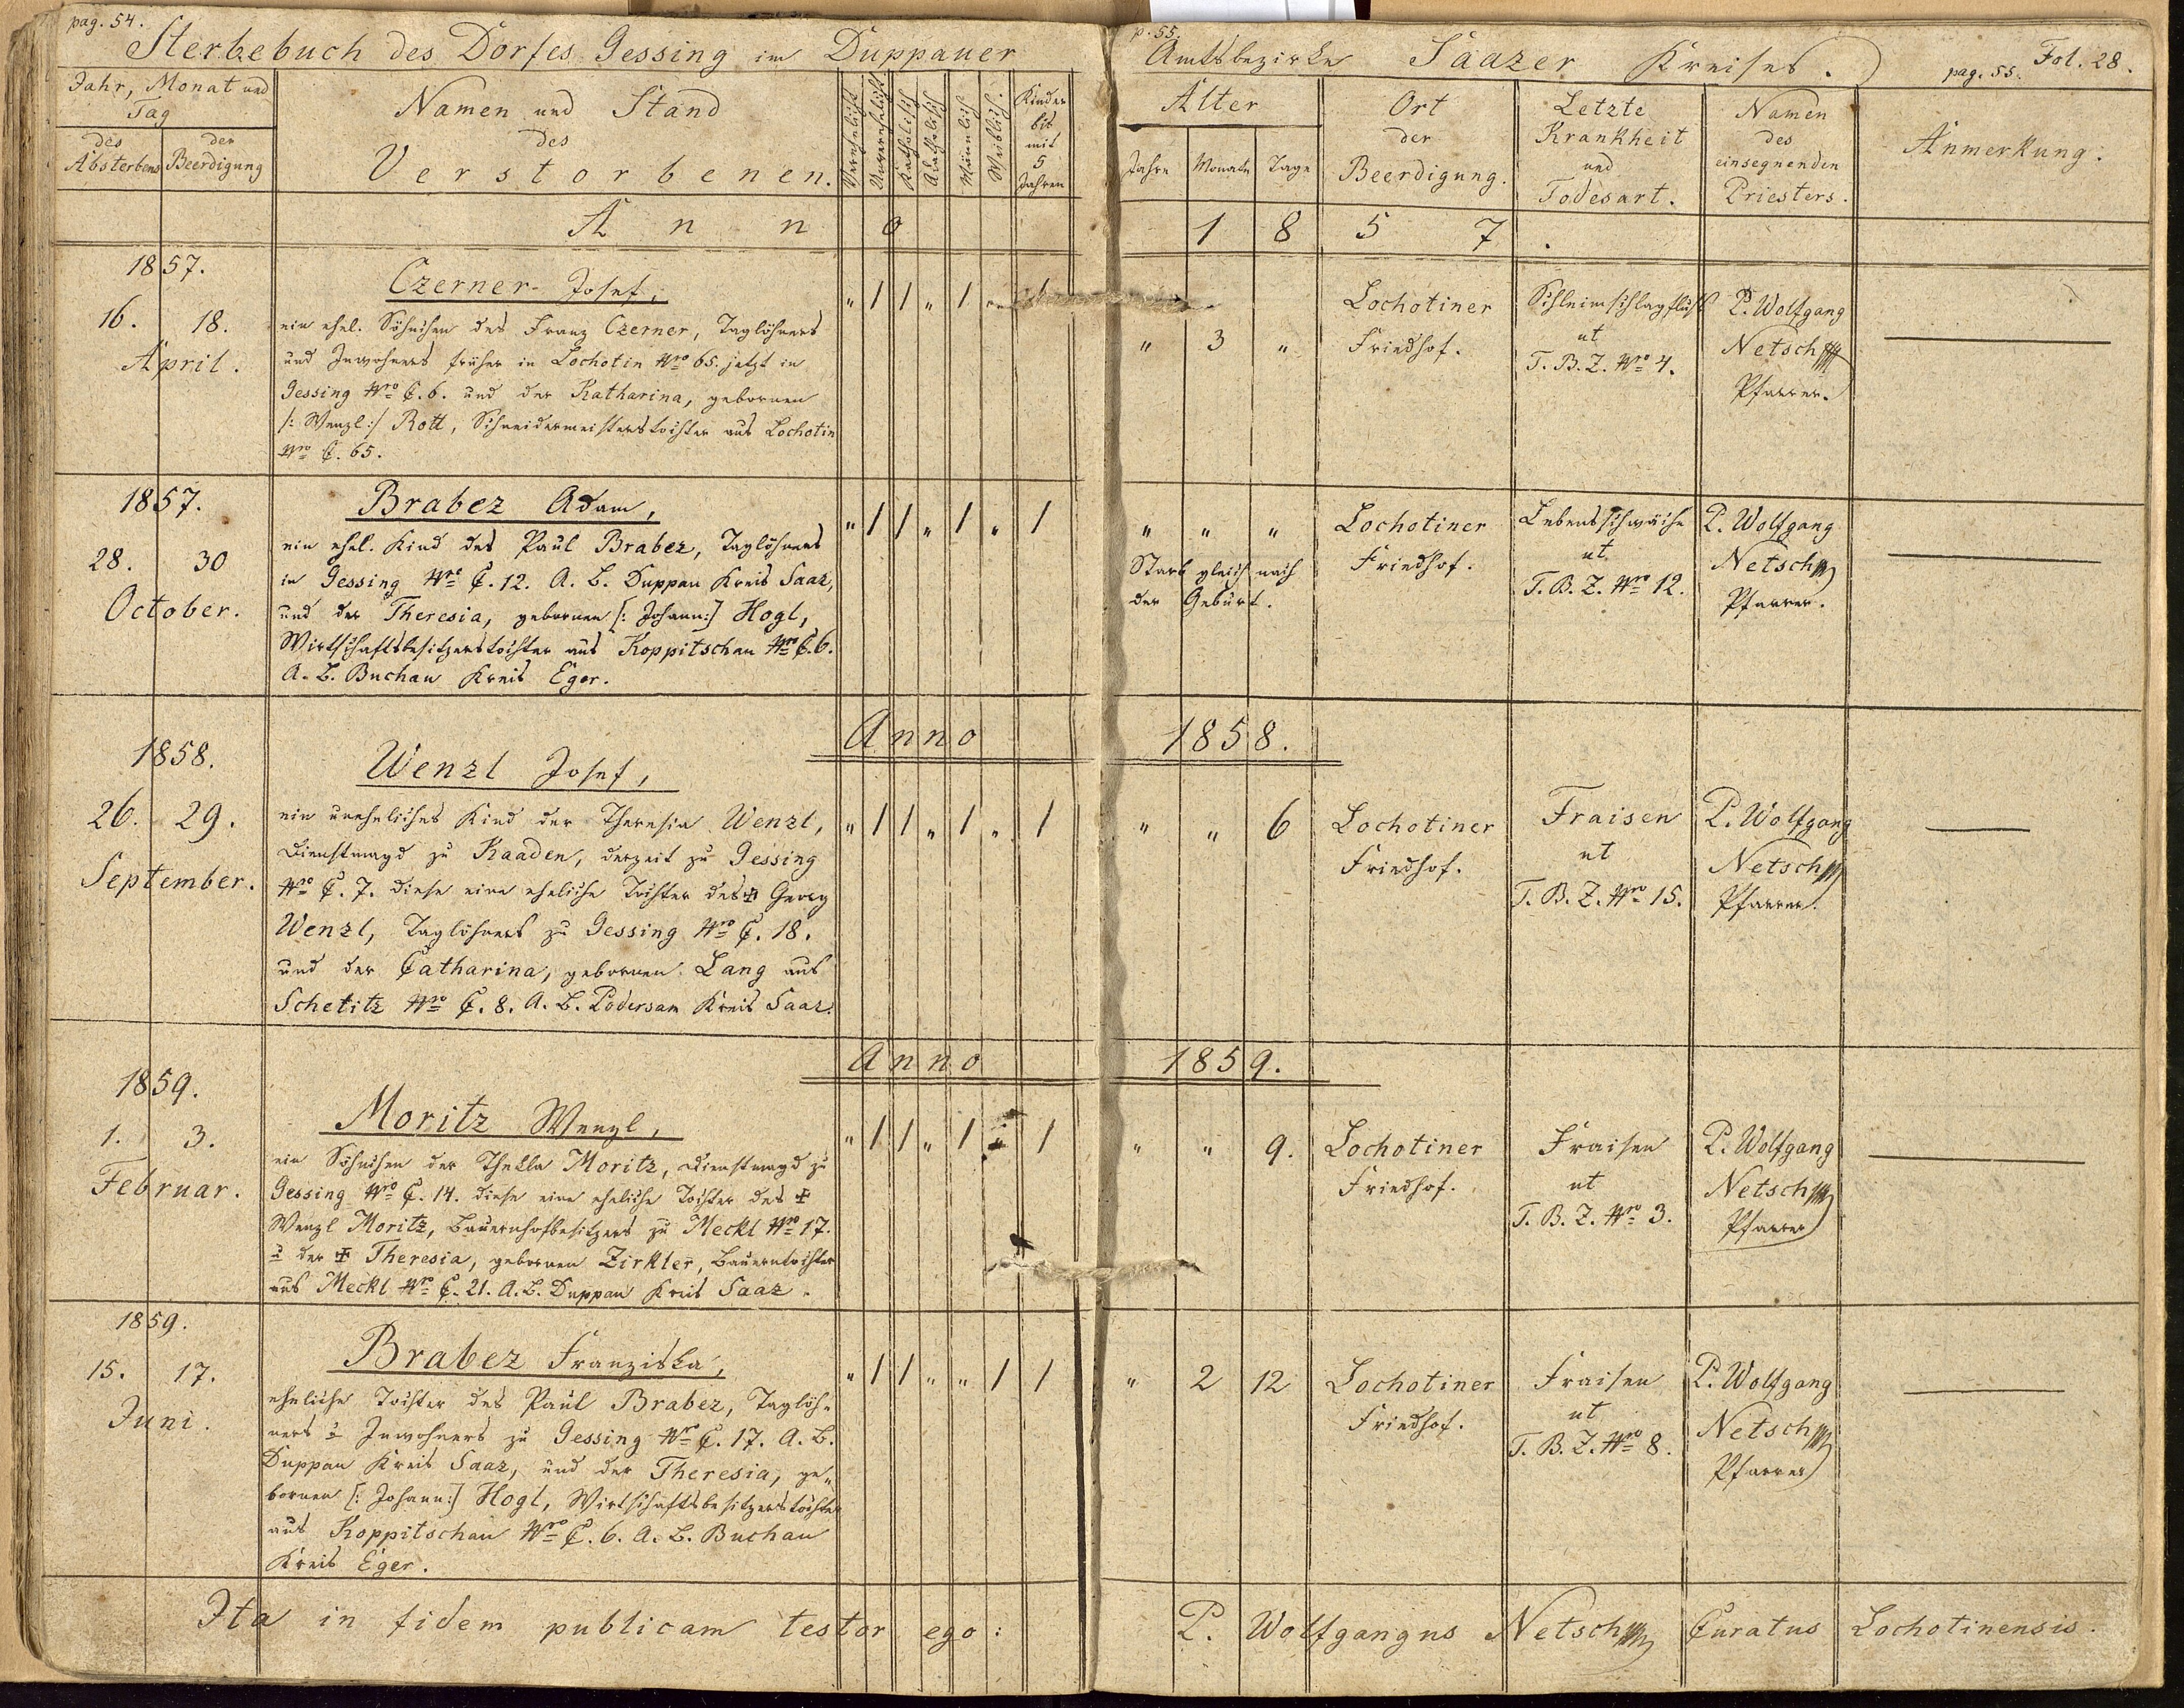 pag. 54.
Sterbebuch des Dorfes Gessing im Duppauer
Jahr, Monat und
Tag
des
Absterbens
der
Beerdigung
Namen und Stand
des
Verstorbenen.
Verehelicht
Unverehelicht
Katholisch
Akatholisch
Männlich
Weiblich.
Kinder
bis
mit
5
Jahren
p. 55.
Amtsbezirke Saazer Kreises.
pag. 55. Fol. 28.
Alter
Jahre Monate Tage
Ort
der
Beerdigung.
Letzte
Krankheit
und
Todesart.
Namen
des
einsegnenden
Priesters.
Anmerkung.
Anno 1857.
1857.
16. 18.
April.
Czerner Josef,
ein ehel. Söhnchen des Franz Czerner, Taglöhners
und Inwohners früher in Lochotin Nro 65. jetzt in
Gessing Nro C. 6. und der Katharina, gebornen
/: Wenzl :/ Rott, Schneidermeisterstochter aus Lochotin
Nro C. 65.
" 1 1 " 1 " 1
" 3 "
Lochotiner
Friedhof.
Schleimschlagfluß
ut
T. B. Z. Nro 4.
P. Wolfgang
Netsch
Pfarrer.
1857.
28. 30
October.
Brabez Adam,
ein ehel. Kind des Paul Brabez, Taglöhners
in Gessing Nro C. 12. A. B. Duppau Kreis Saaz,
und der Theresia, gebornen [: Johann :] Hogl,
Wirtschaftsbesitzerstochter aus Koppitschau Nro C. 6.
A. B. Buchau Kreis Eger.
" 1 1 " 1 " 1
" " "
Starb gleich nach
der Geburt.
Lochotiner
Friedhof.
Lebensschwäche
ut
T. B. Z. Nro 12.
P. Wolfgang
Netsch
Pfarrer.
Anno 1858.
1858.
26. 29.
September.
Wenzl Josef,
ein uneheliches Kind der Theresia Wenzl,
Dienstmagd zu Kaaden, derzeit zu Gessing
Nro C. 7. diese eine eheliche Tochter des ✠ Georg
Wenzl, Taglöhners zu Gessing Nro C. 18.
und der Catharina, gebornen Lang aus
Schetitz Nro C. 8. A. B. Podersam Kreis Saaz.
" 1 1 " 1 " 1
" " 6
Lochotiner
Friedhof.
Fraisen
ut
T. B. Z. Nro 15.
P. Wolfgang
Netsch
Pfarrer.
Anno 1859.
1859.
1. 3.
Februar.
Moritz Wenzl,
ein Söhnchen der Thekla Moritz, Dienstmagd zu
Gessing Nro C. 14. diese eine eheliche Tochter des ✠
Wenzl Moritz, Bauernhofbesitzers zu Meckl Nro 17.
u der ✠ Theresia, gebornen Zirkler, Bauerntochter
aus Meckl Nro C. 21. A. B. Duppau Kreis Saaz.
" 1 1 " 1 " 1
" " 9.
Lochotiner
Friedhof.
Fraisen
ut
T. B. Z. Nro 3.
P. Wolfgang
Netsch
Pfarrer
1859.
15. 17.
Juni.
Brabez Franziska,
eheliche Tochter des Paul Brabez, Taglöh-
ners u Inwohners zu Gessing Nro C. 17. A. B.
Duppau Kreis Saaz, und der Theresia, ge-
bornen [: Johann :] Hogl, Wirtschaftsbesitzerstochter
aus Koppitschau Nro C. 6. A. B. Buchau
Kreis Eger.
" 1 1 " " 1 1
" 2 12
Lochotiner
Friedhof.
Fraisen
ut
T. B. Z. Nro 8.
P. Wolfgang
Netsch
Pfarrer
Ita in fidem publicam testor ego: P. Wolfgangus Netsch Curatus Lochotinensis.